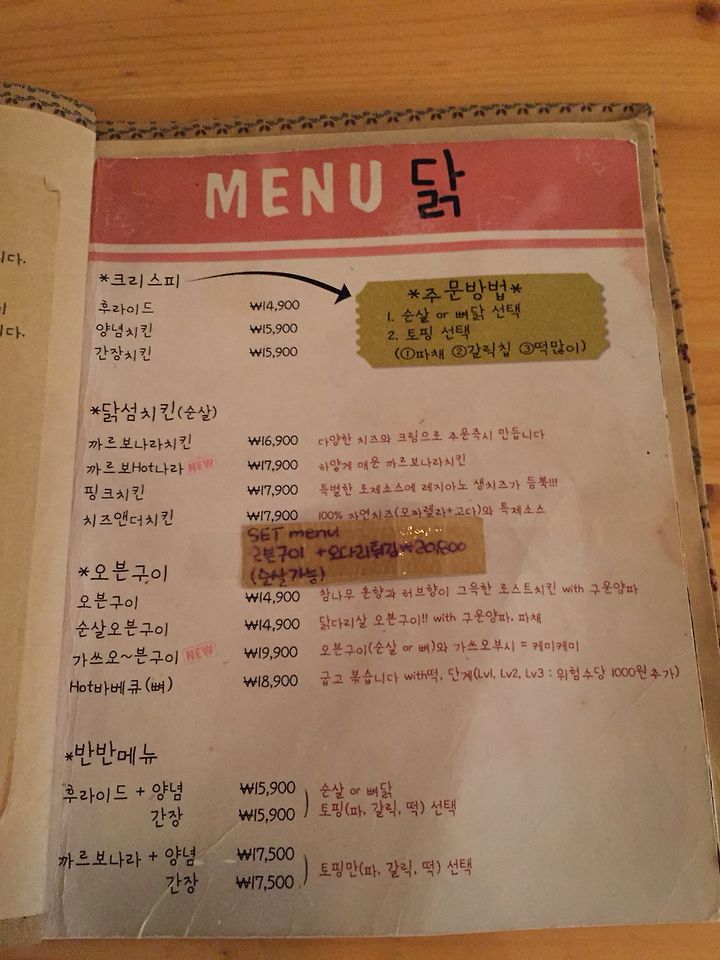 니다.
니다.
MENU 닭
*크리스피
후라이드 ₩14,900
양념치킨 ₩15,900
간장치킨 ₩15,900
*주문방법*
1. 순살 or 뼈닭 선택
2. 토핑 선택
(①파채 ②갈릭칩 ③떡많이)
*닭섬치킨(순살)
까르보나라치킨 ₩16,900 다양한 치즈와 크림으로 주문즉시 만듭니다
까르보Hot나라 NEW ₩17,900 하얗게 매운 까르보나라치킨
핑크치킨 ₩17,900 특별한 로제소스에 레지아노 생치즈가 듬뿍!!!
치즈앤더치킨 ₩17,900 100% 자연치즈(모짜렐라+고다)와 특제소스
SET menu
오븐구이 +오다리튀김 ₩20,800
(순살가능)
*오븐구이
오븐구이 ₩14,900 참나무 훈향과 허브향이 그윽한 로스트치킨 with 구운양파
순살오븐구이 ₩14,900 닭다리살 오븐구이!! with 구운양파, 파채
가쓰오~븐구이 NEW ₩19,900 오븐구이(순살 or 뼈)와 가쓰오부시 = 케미케미
Hot바베큐(뼈) ₩18,900 굽고 볶습니다 with떡, 단계(Lv1, Lv2, Lv3 : 위험수당 1000원 추가)
*반반메뉴
후라이드 + 양념 ₩15,900 순살 or 뼈닭
간장 ₩15,900 토핑(파, 갈릭, 떡) 선택
까르보나라 + 양념 ₩17,500 토핑만(파, 갈릭, 떡) 선택
간장 ₩17,500